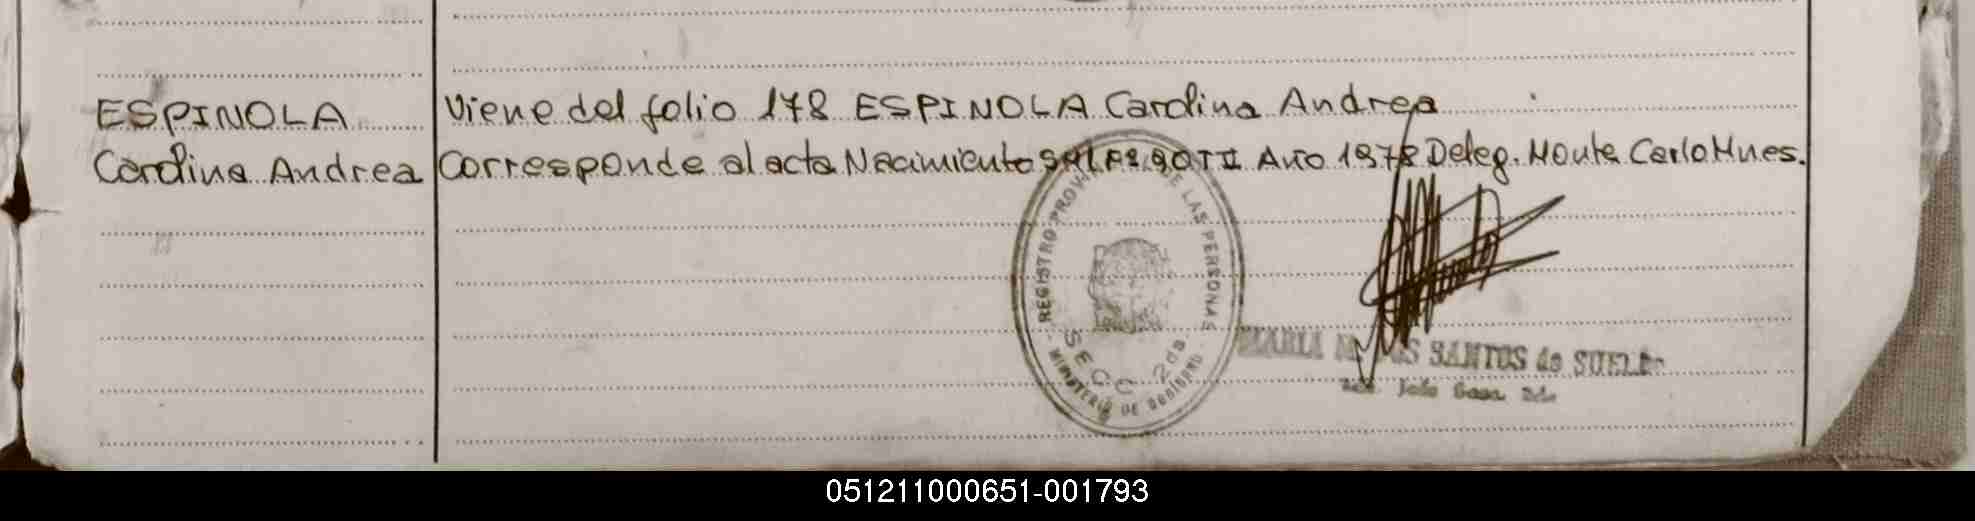 ESPINOLA
Carolina Andrea
Viene del folio 178 ESPINOLA Carolina Andrea
Corresponde al acta Nacimiento TI Año 1978 Deleg. Monte Carlo Mnes.
REGISTRO PROV DE LAS PERSONAS
SECC 2da
MINISTERIO DE GOBIERNO
MARIA SANTOS de SUELDO
Jefe Secc. 2da
051211000651-001793